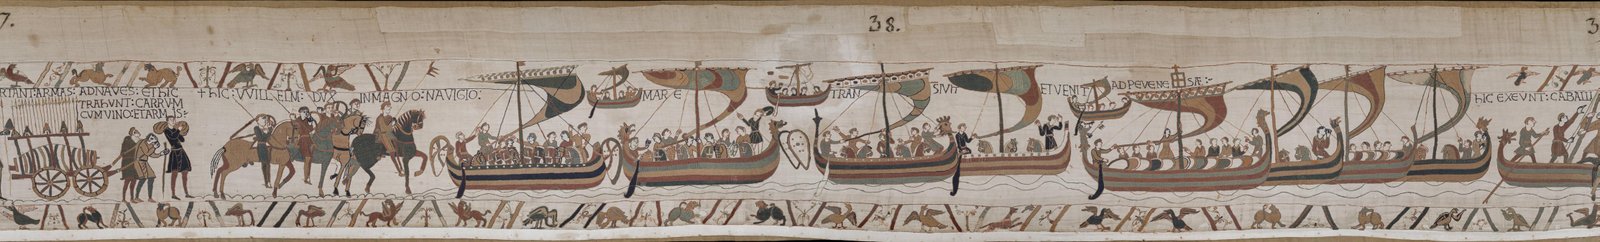 7.
38.
3
RTANT: ARMAS: ADNAVES: ETHIC
TRAhUNT: CARRVM
CVMVINO: ETARMIS:
+ hIC: VVILLELM: DVX INMAGNO: NAVIGIO:
MARE TRANSIVIT ETVENIT ADPEVENESÆ:
hIC EXEUNT: CABALLI